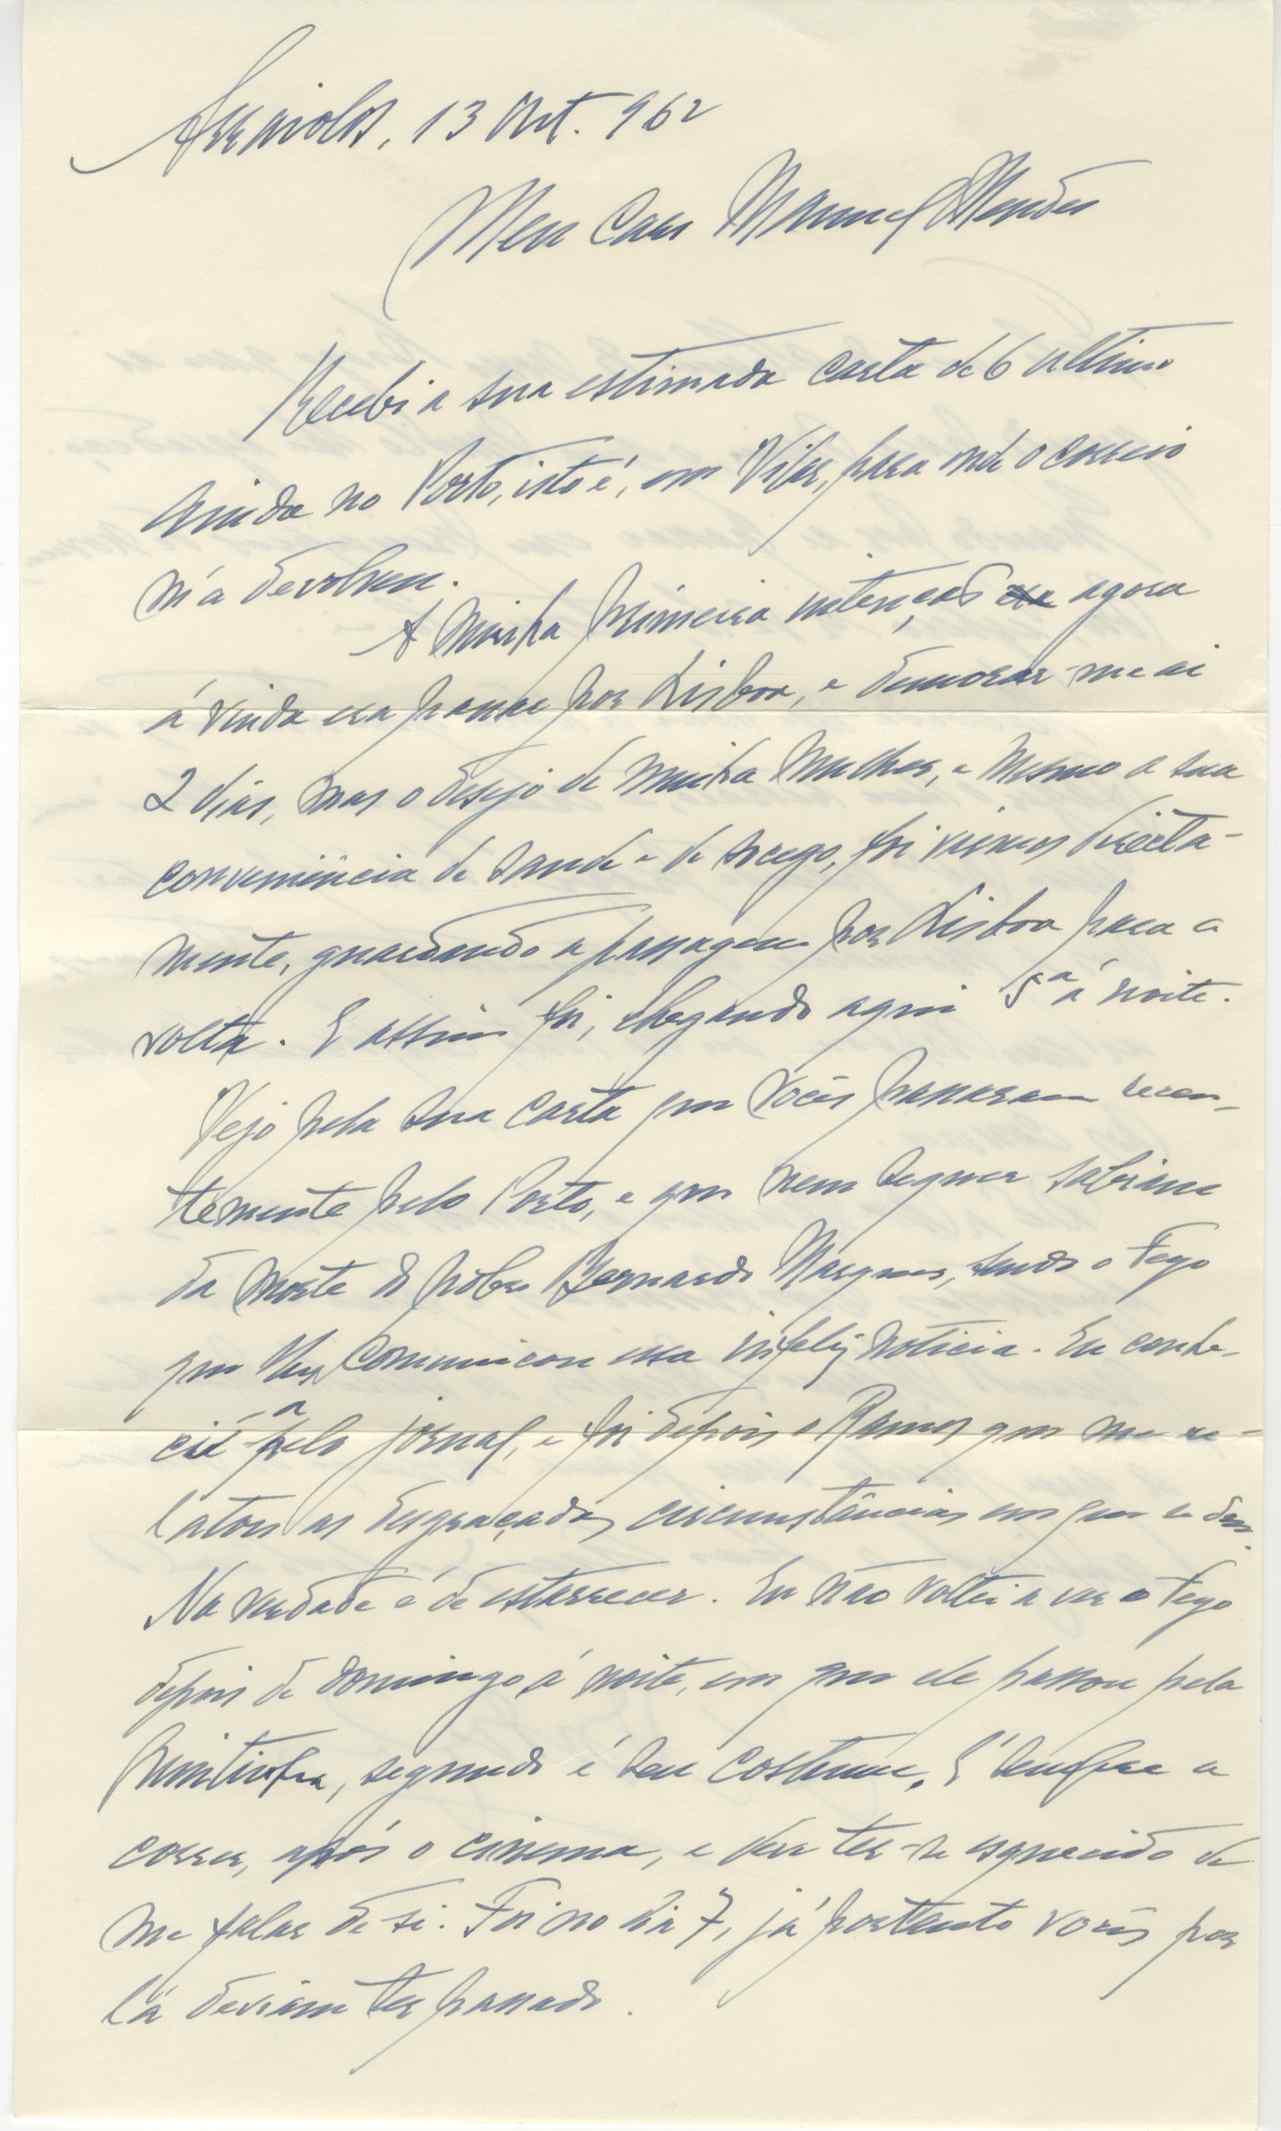 Arraiolos, 13 Out. 962
Meu Caro Manuel Mendes
Recebi a sua estimada carta de 6 ultimo
ainda no Porto, isto é, em Vilar, para onde o correio
m'a devolveu.
A minha primeira intenção agora
á vinda era passar por Lisboa, e demorar-me aí
2 dias, mas o desejo de minha Mulher, e mesmo a sua
conveniência de saude e de socego, foi virmos directa-
mente, guardando a passagem por Lisboa para a
volta. E assim foi, chegando aqui 5ª á noite.
Vejo pela sua carta que vocês passaram recen-
temente pelo Porto, e que nem sequer sabiam
da morte do pobre Bernardo Marques, sendo o Feyo
que lhes comunicou essa infeliz noticia. Eu conhe-
ci-a pelo jornal, e foi depois o Ramos que me re-
latou as desgraçadas circunstâncias em que se deu.
Na verdade é de estarrecer. Eu não voltei a ver o Feyo
depois de domingo á noite, em que ele passou pela
, segundo é seu costume, é sempre a
correr, após o cinema, e deve ter-se esquecido de
me falar de si. Foi no dia 7, já portanto vocês por
lá deviam ter passado.